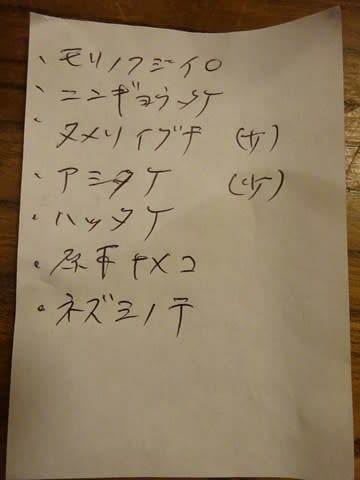 ・モリノフジイロ
・ニンギョウタケ
・ヌメリイグチ
・アミタケ
・ハツタケ
・原木ナメコ
・ネズミノテ